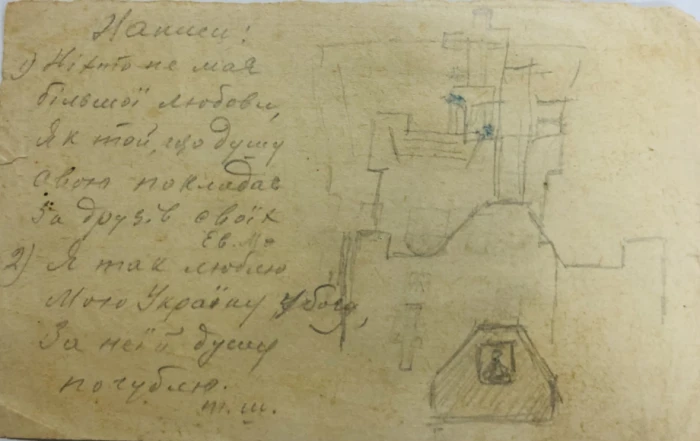 Написи:
1) Ніхто не має
більшої любови,
як той, що душу
свою покладає
За друзів своїх
Єв.
2) Я так люблю
Мою Україну убогу,
За неїй душу
погублю.
т. ш.